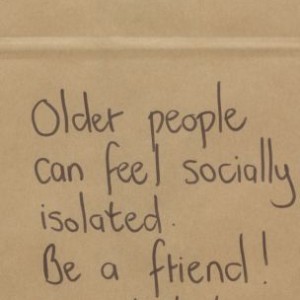 Older people
can feel socially
isolated.
Be a friend!